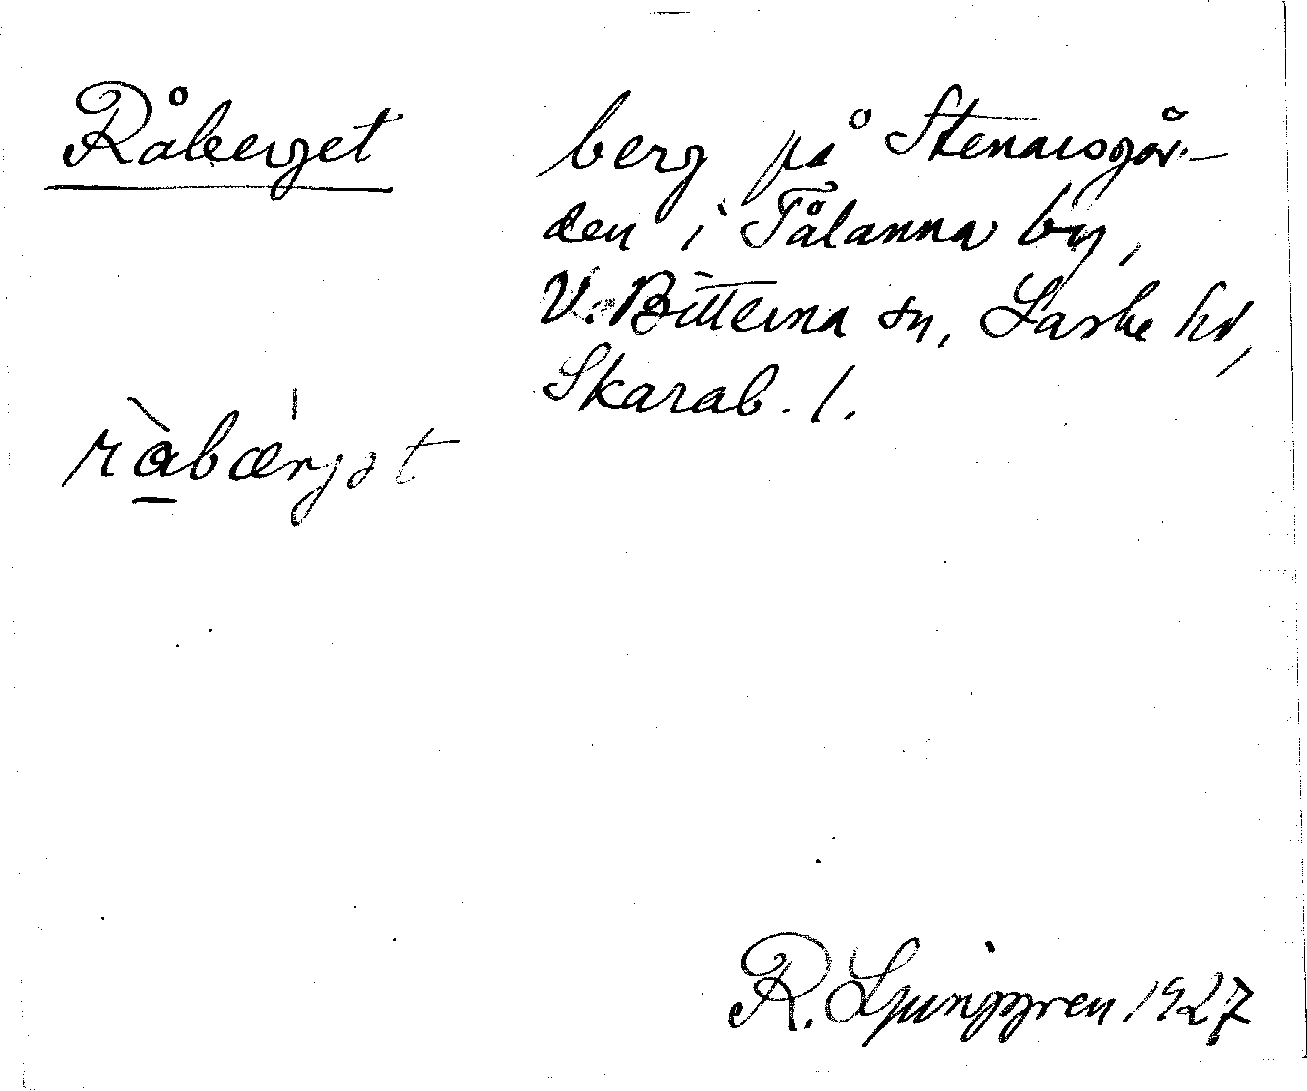 Råberget
berg på Stenarsgår-
den i Tålanna by,
V. Bitterna sn, Laske hd,
Skarab. l.
ràbærjət
R. Ljunggren 1927